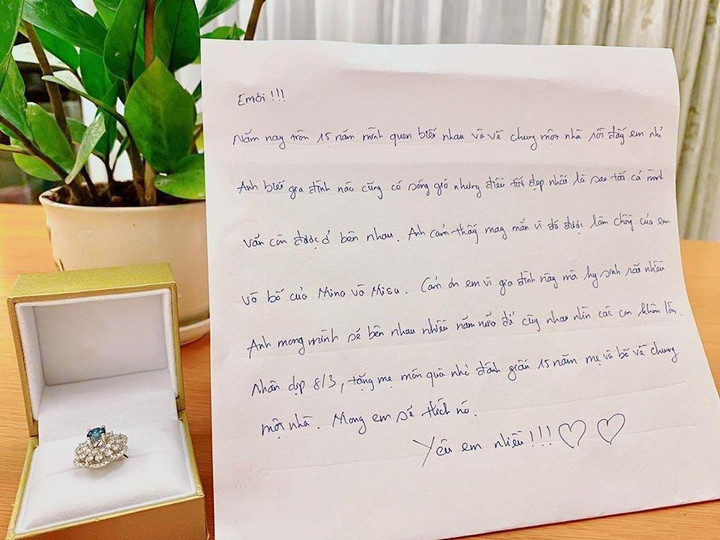 Em ơi !!!
Năm nay tròn 15 năm mình quen biết nhau và về chung một nhà rồi đấy em nhỉ
Anh biết gia đình nào cũng có sóng gió nhưng điều tốt đẹp nhất là sau tất cả mình
vẫn còn được ở bên nhau. Anh cảm thấy may mắn vì đã được làm chồng của em
và bố của Mino và Misu. Cảm ơn em vì gia đình này mà hy sinh rất nhiều
Anh mong mình sẽ bên nhau nhiều năm nữa để cùng nhau nhìn các con khôn lớn.
Nhân dịp 8/3, tặng mẹ món quà nhỏ đánh giấu 15 năm mẹ và bố về chung
một nhà. Mong em sẽ thích nó.
Yêu em nhiều !!! ♡ ♡